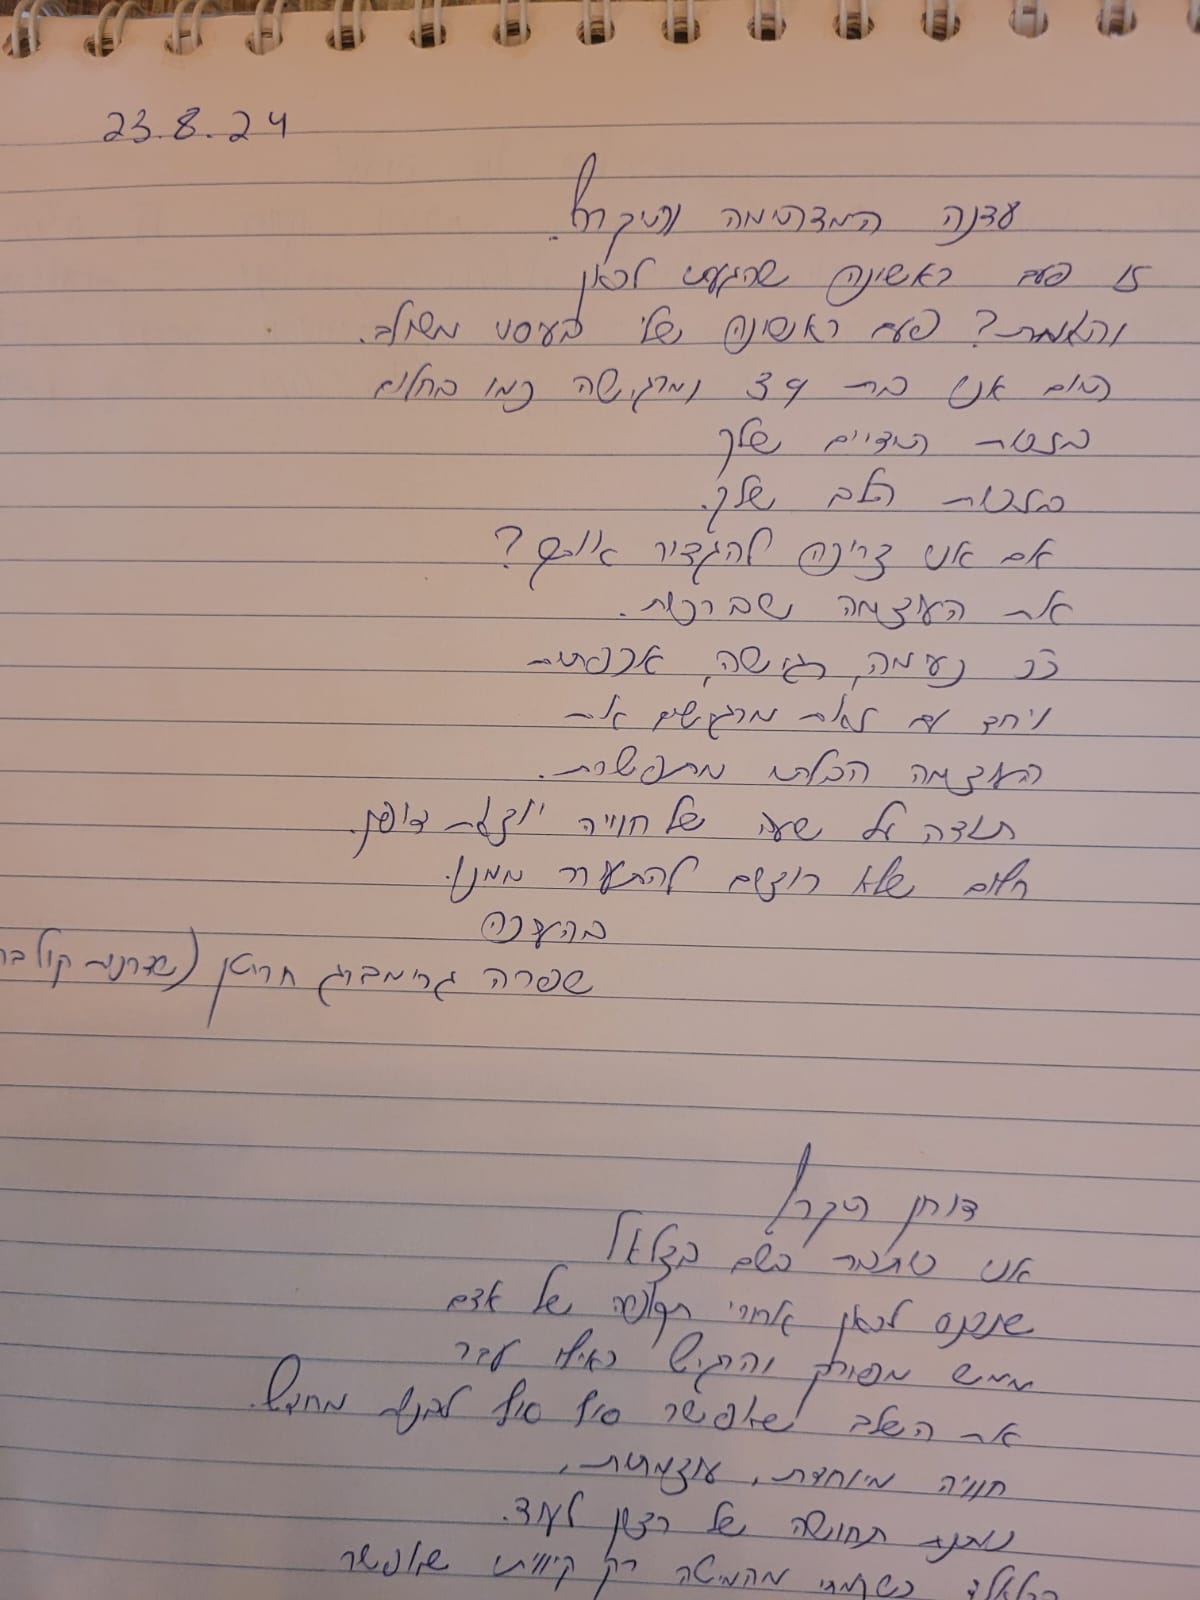 23.8.24
עדנה המדהימה והיקרה!
זו פעם ראשונה שהגעתי לכאן
והאמת? פעם ראשונה שלי בעיסוי משולב.
היום אני בת 34 ומרגישה כמו בחלום
בזכות הידיים שלך
בזכות הלב שלך.
אם אני צריכה להגדיר אותך?
את העוצמה שברכות.
כ"כ נעימה, רגישה, אכפתית
ויחד עם זאת מרגישים את
העוצמה הבלתי מתפשרת.
תודה על שעה של חוויה יוצאת דופן.
חלום שלא רוצים להתעורר ממנו.
בהערכה
שפרה גרימברג חריטן (שדרנית קול בר
דותן היקר!
אני כותבת בשם בצלאל
שנכנס לכאן אחרי תקופה של אדם
ממש מפורק והרגיש כאילו עבר
את השלב שאפשר סוף סוף לבנות מחדש.
חוויה מיוחדת, עוצמתית,
נותנת תחושה של רצון לעוד.
כשקמתי מהמיטה רק קיוויתי שאפשר